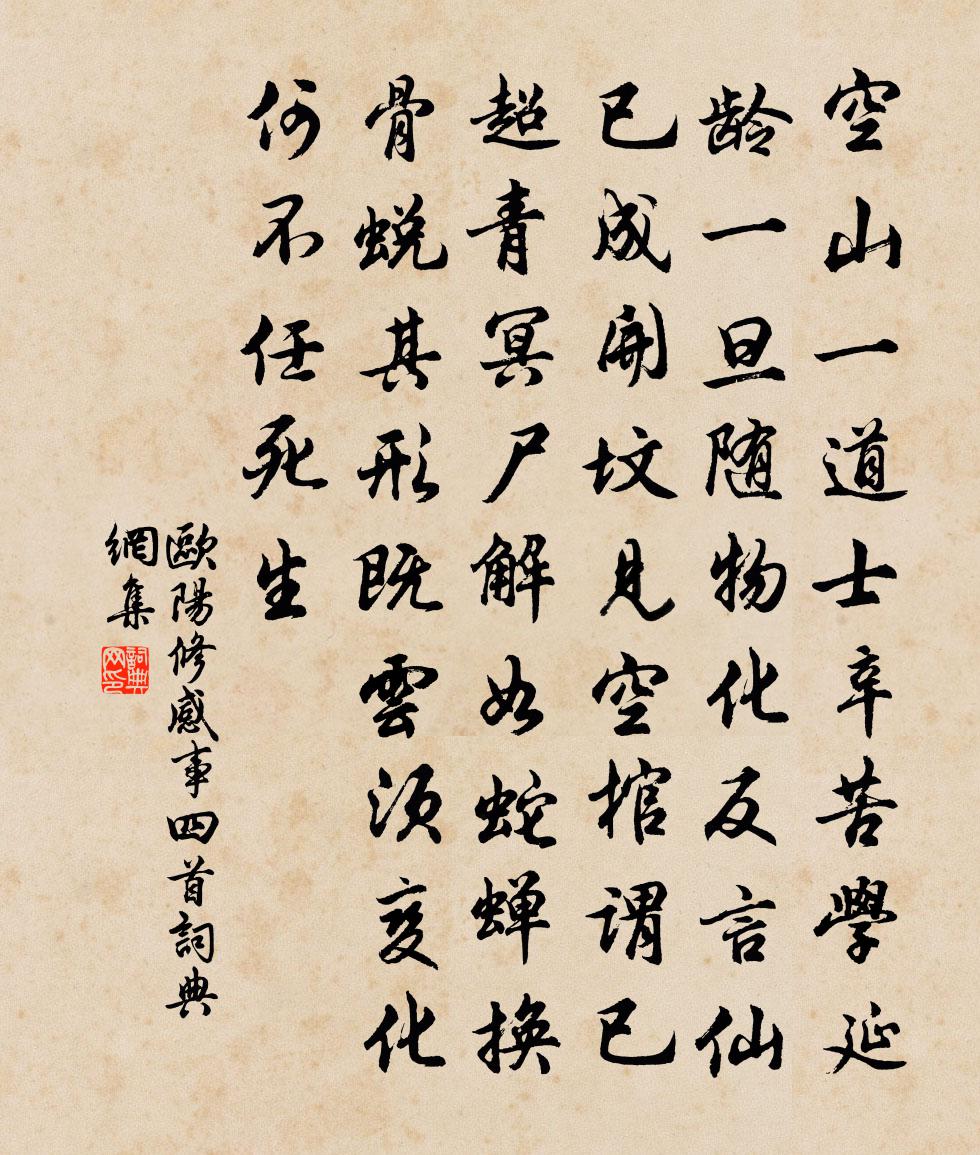 空山一道士辛苦學延
龄一旦随物化反言仙
已成開坟見空棺谓已
超青冥尸解如蛇蝉換
骨蜕其形既雲须变化
何不任死生
歐陽修感事四首詞典
網集
詞典
网印